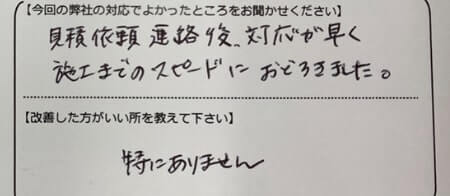 【今回の弊社の対応でよかったところをお聞かせください】
見積依頼連絡後、対応が早く
施工までのスピードにおどろきました。
【改善した方がいい所を教えて下さい】
特にありません